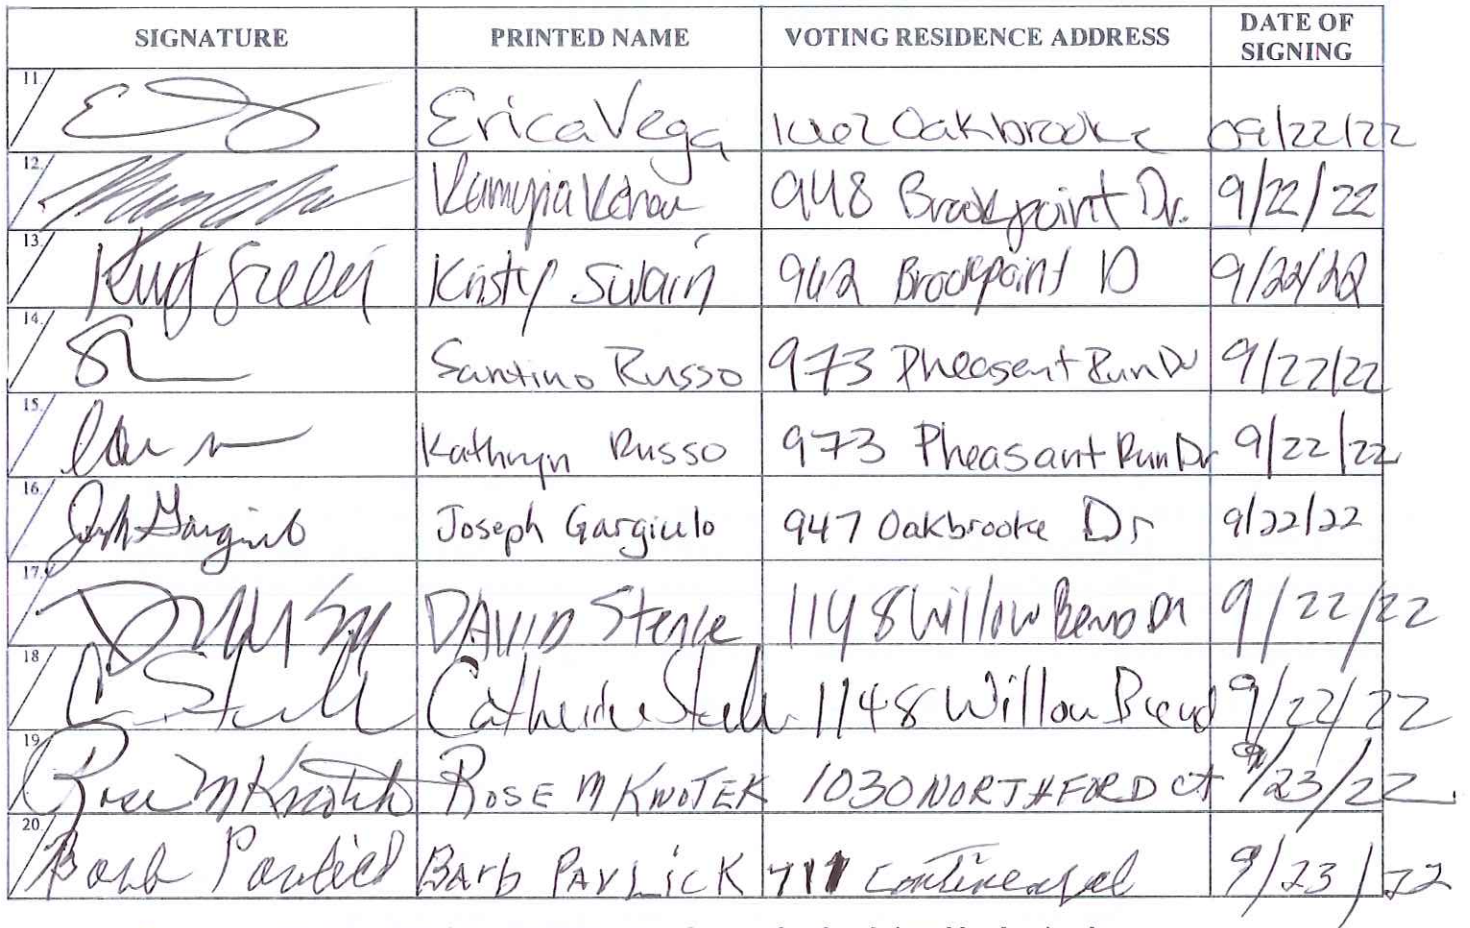 SIGNATURE PRINTED NAME VOTING RESIDENCE ADDRESS DATE OF SIGNING
11. Erica Vega Oakbrooke 09/22/22
12. 948 Brookpoint Dr. 9/22/22
13. Kristy Swain 942 Brookpoint D 9/22/22
14. Santino Russo 973 Pheasant Run Dr 9/22/22
15. Kathryn Russo 973 Pheasant Run Dr 9/22/22
16. Joseph Gargiulo Joseph Gargiulo 947 Oakbrooke Dr 9/22/22
17. DAVID 1148 Willow Bend Dr 9/22/22
18 C. Catherine 1148 Willow Bend 9/22/22
19 Rose M Knotek ROSE M KNOTEK 1030 NORTHFORD Ct 9/23/22
20. Barb Pavlick BARb PAVLICK Continental 9/23/22